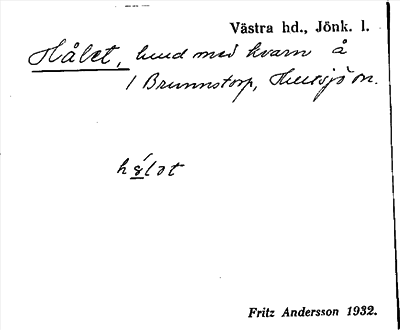 Västra hd., Jönk. l.
Hålet, lund med kvarn å
1 Brunnstorp, Hultsjö sn.
hǻlət
Fritz Andersson 1932.